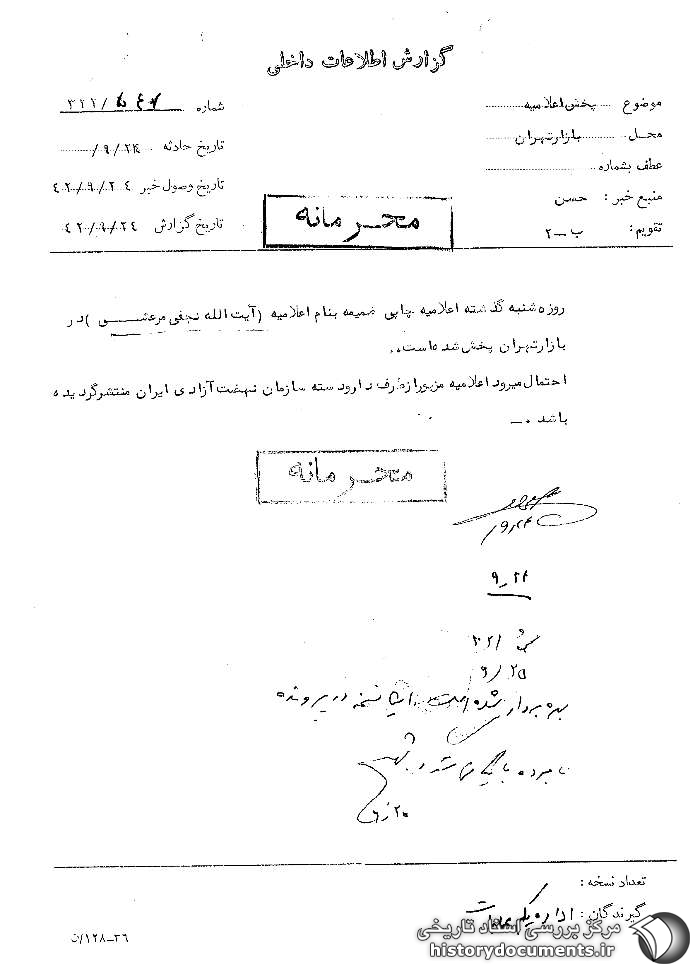 گزارش اطلاعات داخلی
موضوع پخش اعلامیه
محل بازار تهران
عطف بشماره
منبع خبر : حسن
تقویم : ب ـ ۲
شماره /۳۲۱
تاریخ حادثه ۹/۲۴/
تاریخ وصول خبر ۴۲/۹/۲۴
تاریخ گزارش ۴۲/۹/۲۴
محرمانه
روز ه شنبه گذشته اعلامیه چاپی ضمیمه بنام اعلامیه (آیت الله نجفی مرعشی) در
بازار تهران پخش شده است..
احتمال میرود اعلامیه مزبور از طرف دارودسته سازمان نهضت آزادی ایران منتشر گردیده
باشد .ـ
محرمانه
۹ـ۲۴
۹/۲۵
بهره برداری شده است نسخه در پرونده
نامبرده بایگانی شود
تعداد نسخه :
گیرندگان : اداره یکم عملیات
۳۶ـ۱۲۸/ن
مرکز بررسی اسناد تاریخی
historydocuments.ir